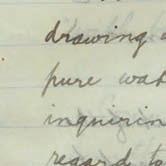 drawing
pure wat
inquirin
regard